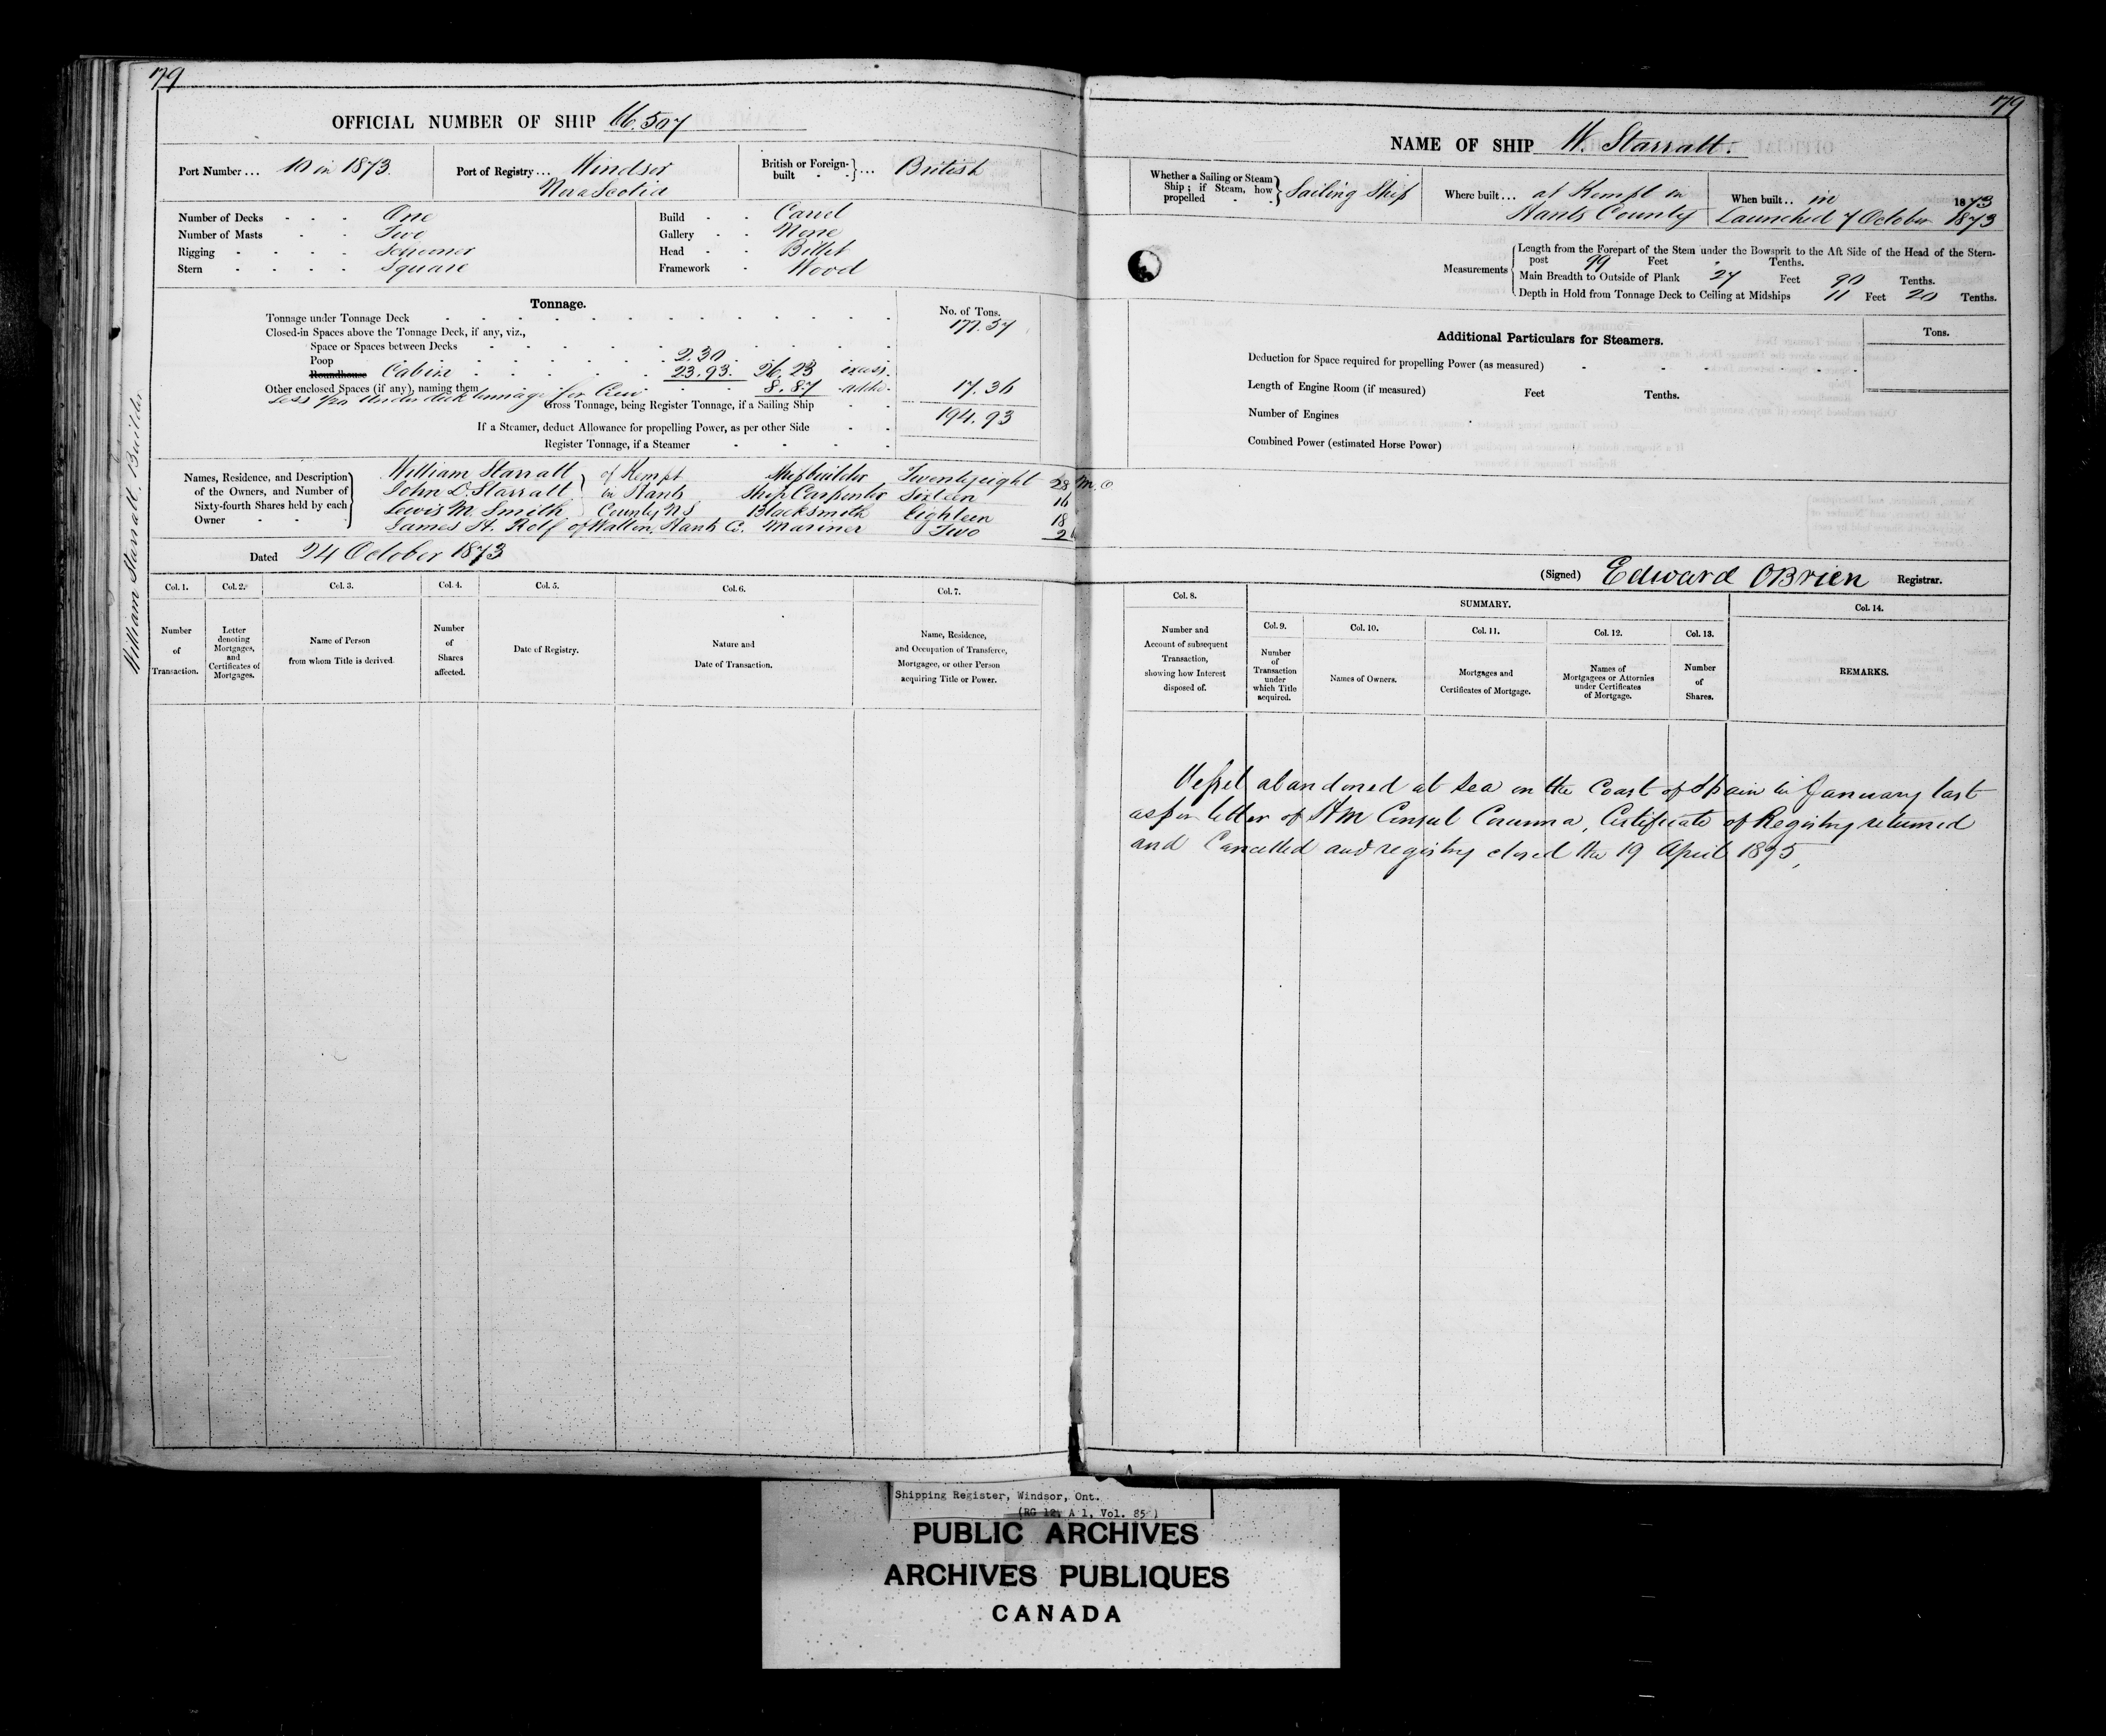 79
OFFICIAL NUMBER OF SHIP 66.507
Port Number ... 10 in 1873.
Port of Registry ... Windsor
Nova Scotia
British or Foreign-built } ... British
Number of Decks - - - One
Number of Masts - - Two
Rigging - - - - Schooner
Stern - - - - Square
Build - - Carvel
Gallery - - None
Head - - Billet
Framework - Wood
Tonnage.
No. of Tons.
Tonnage under Tonnage Deck 177.57
Closed-in Spaces above the Tonnage Deck, if any, viz.,
Space or Spaces between Decks
Poop 2.30
Roundhouse Cabin 23.93. 26.23 excess.
Other enclosed Spaces (if any), naming them 8.87 added. 17.36
Less 1/20 under deck tonnage for Crew
Gross Tonnage, being Register Tonnage, if a Sailing Ship 194.93
If a Steamer, deduct Allowance for propelling Power, as per other Side
Register Tonnage, if a Steamer
Names, Residence, and Description of the Owners, and Number of Sixty-fourth Shares held by each Owner
William Starratt } of Kempt Shipbuilder Twentyeight 28 M.O
John D. Starratt } in Hants Ship Carpenter Sixteen 16
Lewis M. Smith } County NS Blacksmith Eighteen 18
James H. Rolf of Walton, Hants Co. Mariner Two 2
Dated 24 October 1873
William Starratt, Builder
Col. 1. Col. 2. Col. 3. Col. 4. Col. 5. Col. 6. Col. 7.
Number of Transaction.
Letter denoting Mortgages, and Certificates of Mortgages.
Name of Person from whom Title is derived.
Number of Shares affected.
Date of Registry.
Nature and Date of Transaction.
Name, Residence, and Occupation of Transferee, Mortgagee, or other Person acquiring Title or Power.
79
NAME OF SHIP W. Starratt.
Whether a Sailing or Steam Ship; if Steam, how propelled } Sailing Ship
Where built ... at Kempt in
Hants County
When built .. in 1873
Launched 7 October 1873
Measurements
Length from the Forepart of the Stem under the Bowsprit to the Aft Side of the Head of the Stern-
post 99 Feet Tenths.
Main Breadth to Outside of Plank 27 Feet 90 Tenths.
Depth in Hold from Tonnage Deck to Ceiling at Midships 11 Feet 20 Tenths.
Additional Particulars for Steamers.
Tons.
Deduction for Space required for propelling Power (as measured)
Length of Engine Room (if measured) Feet Tenths.
Number of Engines
Combined Power (estimated Horse Power)
(Signed) Edward OBrien Registrar.
Col. 8. SUMMARY. Col. 14.
Col. 9. Col. 10. Col. 11. Col. 12. Col. 13.
Number and Account of subsequent Transaction, showing how Interest disposed of.
Number of Transaction under which Title acquired.
Names of Owners.
Mortgages and Certificates of Mortgage.
Names of Mortgagees or Attornies under Certificates of Mortgage.
Number of Shares.
REMARKS.
Vessel abandoned at Sea on the Coast of Spain in January last
as per letter of HM Consul Corunna, Certificate of Registry returned
and Cancelled and registry closed the 19 April 1875,
Shipping Register, Windsor, Ont.
(RG 12, A 1, Vol. 85)
PUBLIC ARCHIVES
ARCHIVES PUBLIQUES
CANADA